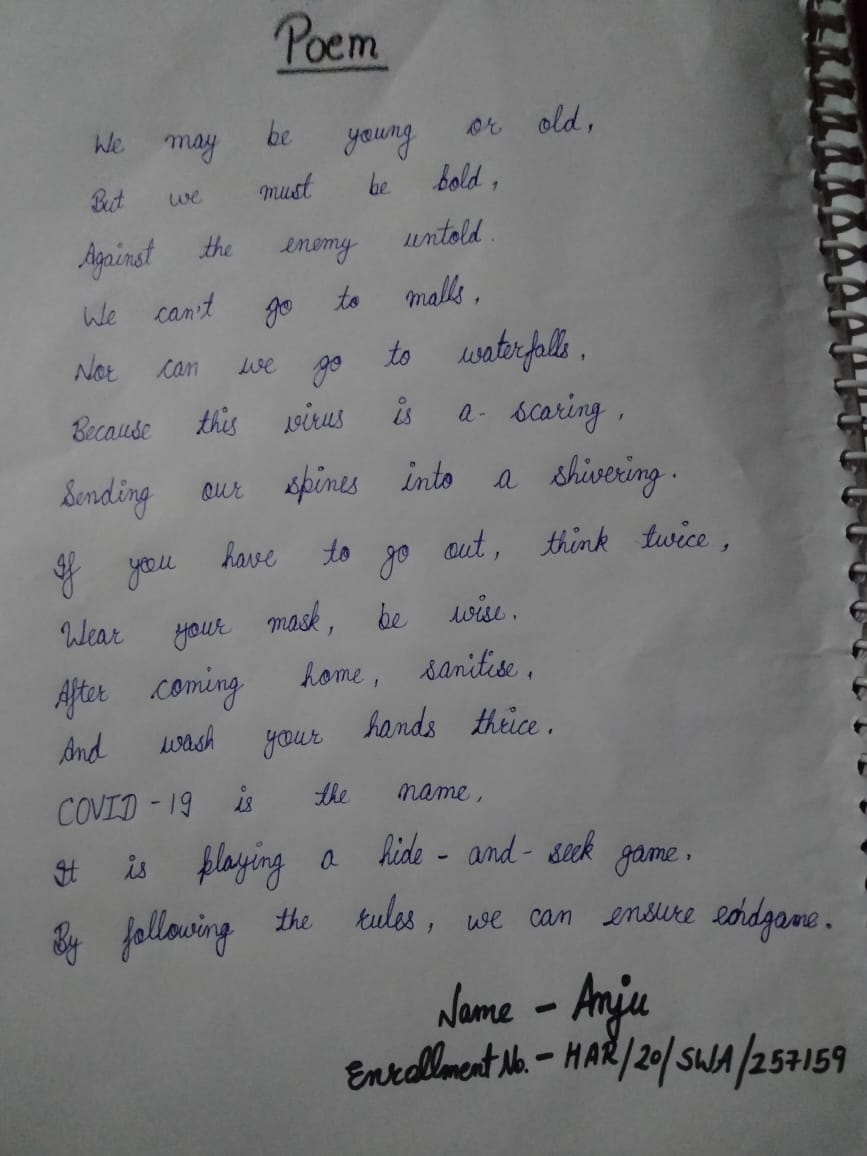 Poem
We may be young or old,
But we must be bold,
Against the enemy untold.
We can't go to malls,
Nor can we go to waterfalls,
Because this virus is a- scaring,
Sending our spines into a shivering.
If you have to go out, think twice,
Wear your mask, be wise.
After coming home, sanitise,
And wash your hands thrice.
COVID-19 is the name,
It is playing a hide-and-seek game.
By following the rules, we can ensure endgame.
Name - Anju
Enrollment No. - HAR/20/SWA/257159